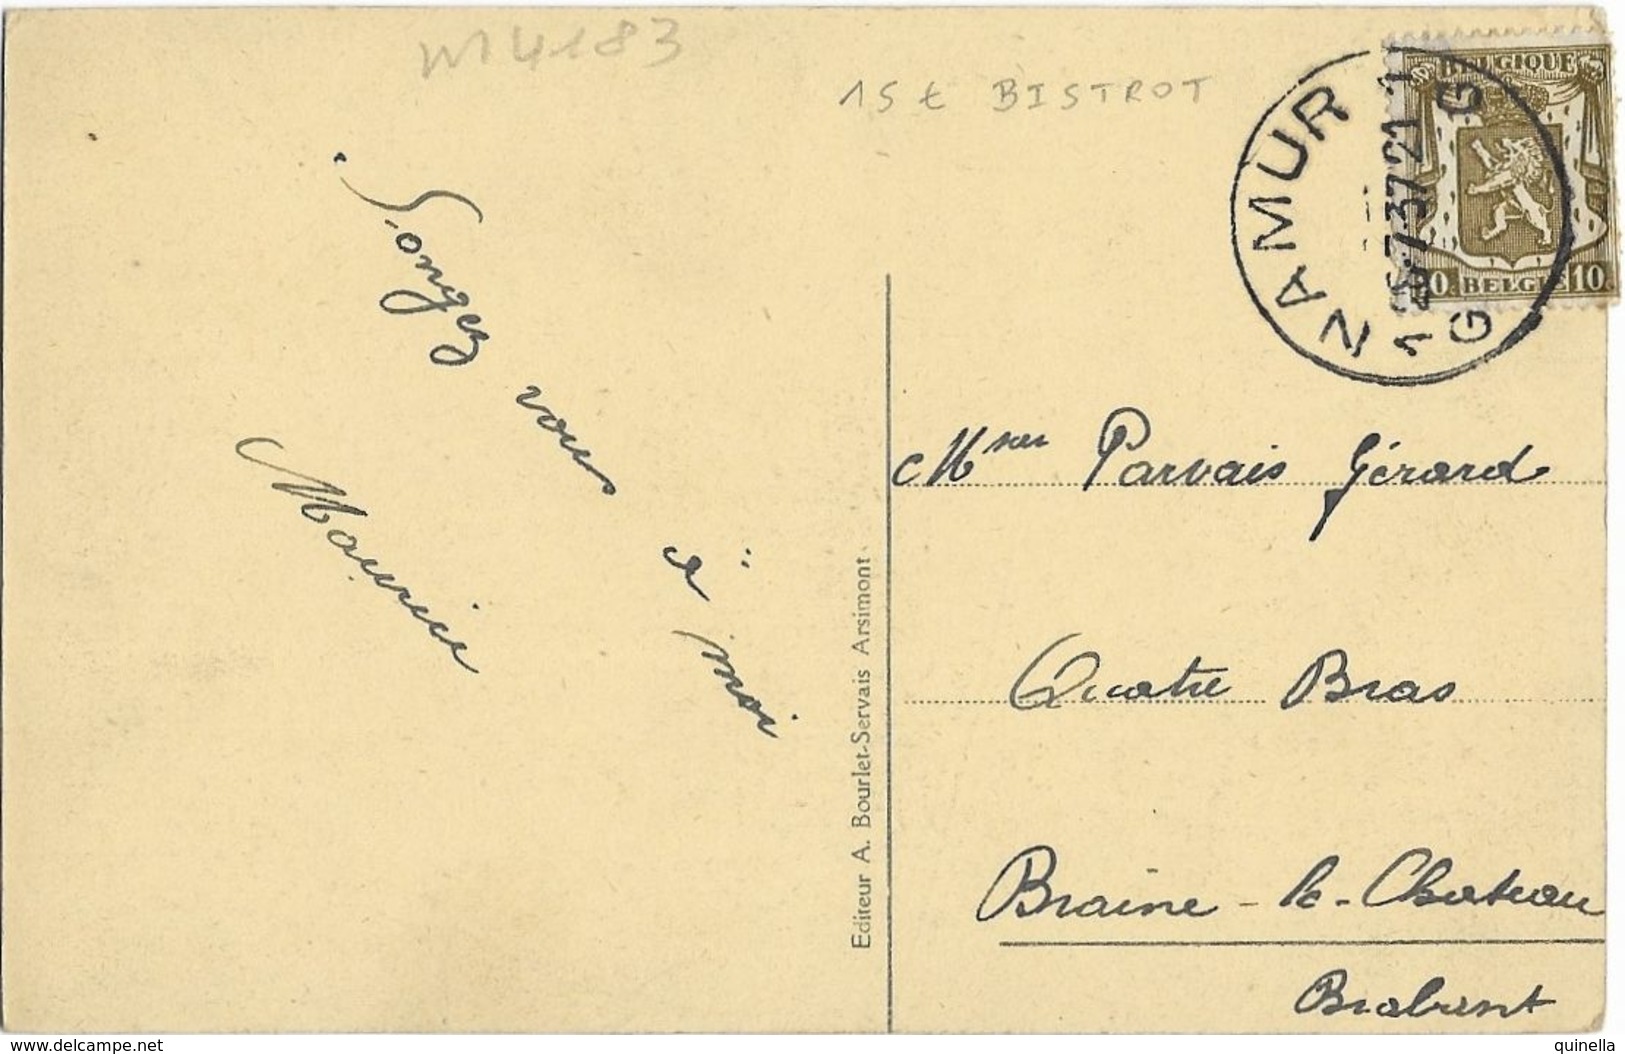 M 4183
15 € BISTROT
BELGIQUE
10. BELGIË 10.
NAMUR 1
1 26·7-37 21 1
G G
Songez
vous
à
moi
Maurice
Editeur A. Bourlet-Servais Arsimont
Msieur Parvais Gérard
Quatre Bras
Braine-le-Chateau
Brabant
www.delcampe.net
quinella